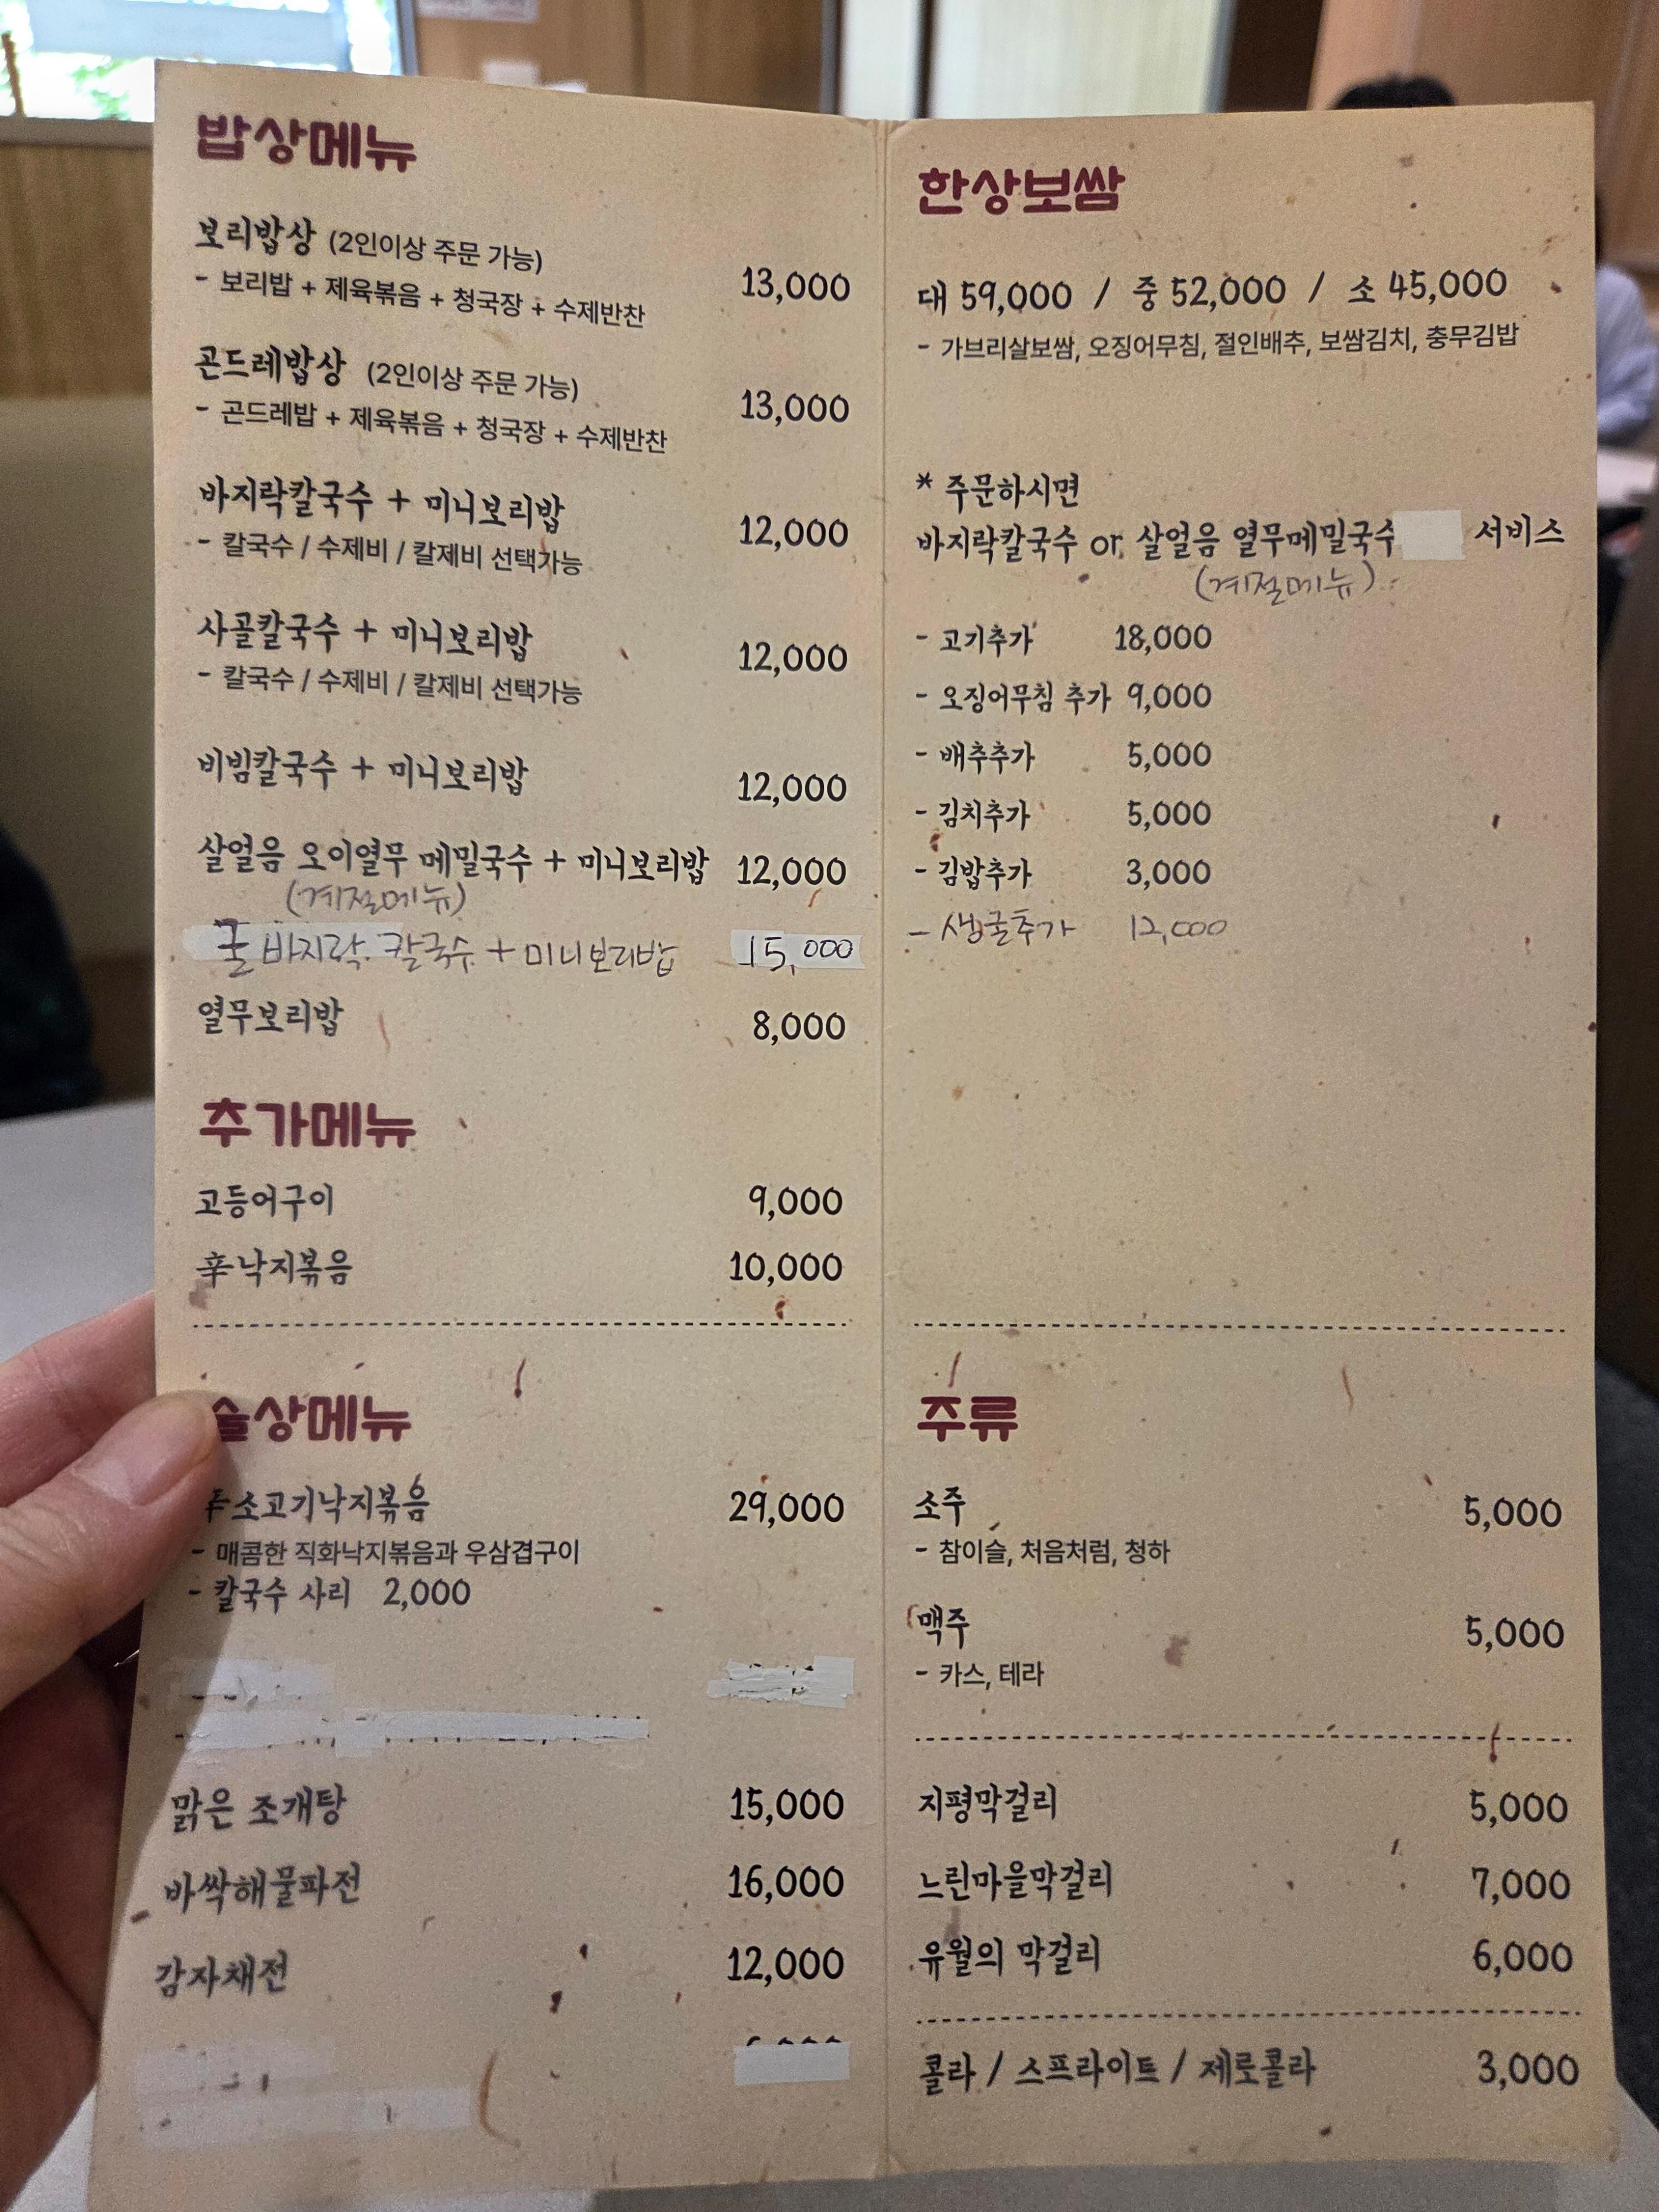 밥상메뉴
보리밥상 (2인이상 주문 가능)
- 보리밥 + 제육볶음 + 청국장 + 수제반찬
13,000
곤드레밥상 (2인이상 주문 가능)
- 곤드레밥 + 제육볶음 + 청국장 + 수제반찬
13,000
바지락칼국수 + 미니보리밥
- 칼국수 / 수제비 / 칼제비 선택가능
12,000
사골칼국수 + 미니보리밥
- 칼국수 / 수제비 / 칼제비 선택가능
12,000
비빔칼국수 + 미니보리밥 12,000
살얼음 오이열무 메밀국수 + 미니보리밥 12,000
(계절메뉴)
굴 바지락. 칼국수 + 미니보리밥 15,000
열무보리밥 8,000
추가메뉴
고등어구이 9,000
辛낙지볶음 10,000
술상메뉴
辛소고기낙지볶음 29,000
- 매콤한 직화낙지볶음과 우삼겹구이
- 칼국수 사리 2,000
맑은 조개탕 15,000
바싹해물파전 16,000
감자채전 12,000
한상보쌈
대 59,000 / 중 52,000 / 소 45,000
- 가브리살보쌈, 오징어무침, 절인배추, 보쌈김치, 충무김밥
* 주문하시면
바지락칼국수 or 살얼음 열무메밀국수 서비스
(계절메뉴)
- 고기추가 18,000
- 오징어무침 추가 9,000
- 배추추가 5,000
- 김치추가 5,000
- 김밥추가 3,000
- 생굴추가 12,000
주류
소주 5,000
- 참이슬, 처음처럼, 청하
맥주 5,000
- 카스, 테라
지평막걸리 5,000
느린마을막걸리 7,000
유월의 막걸리 6,000
콜라 / 스프라이트 / 제로콜라 3,000